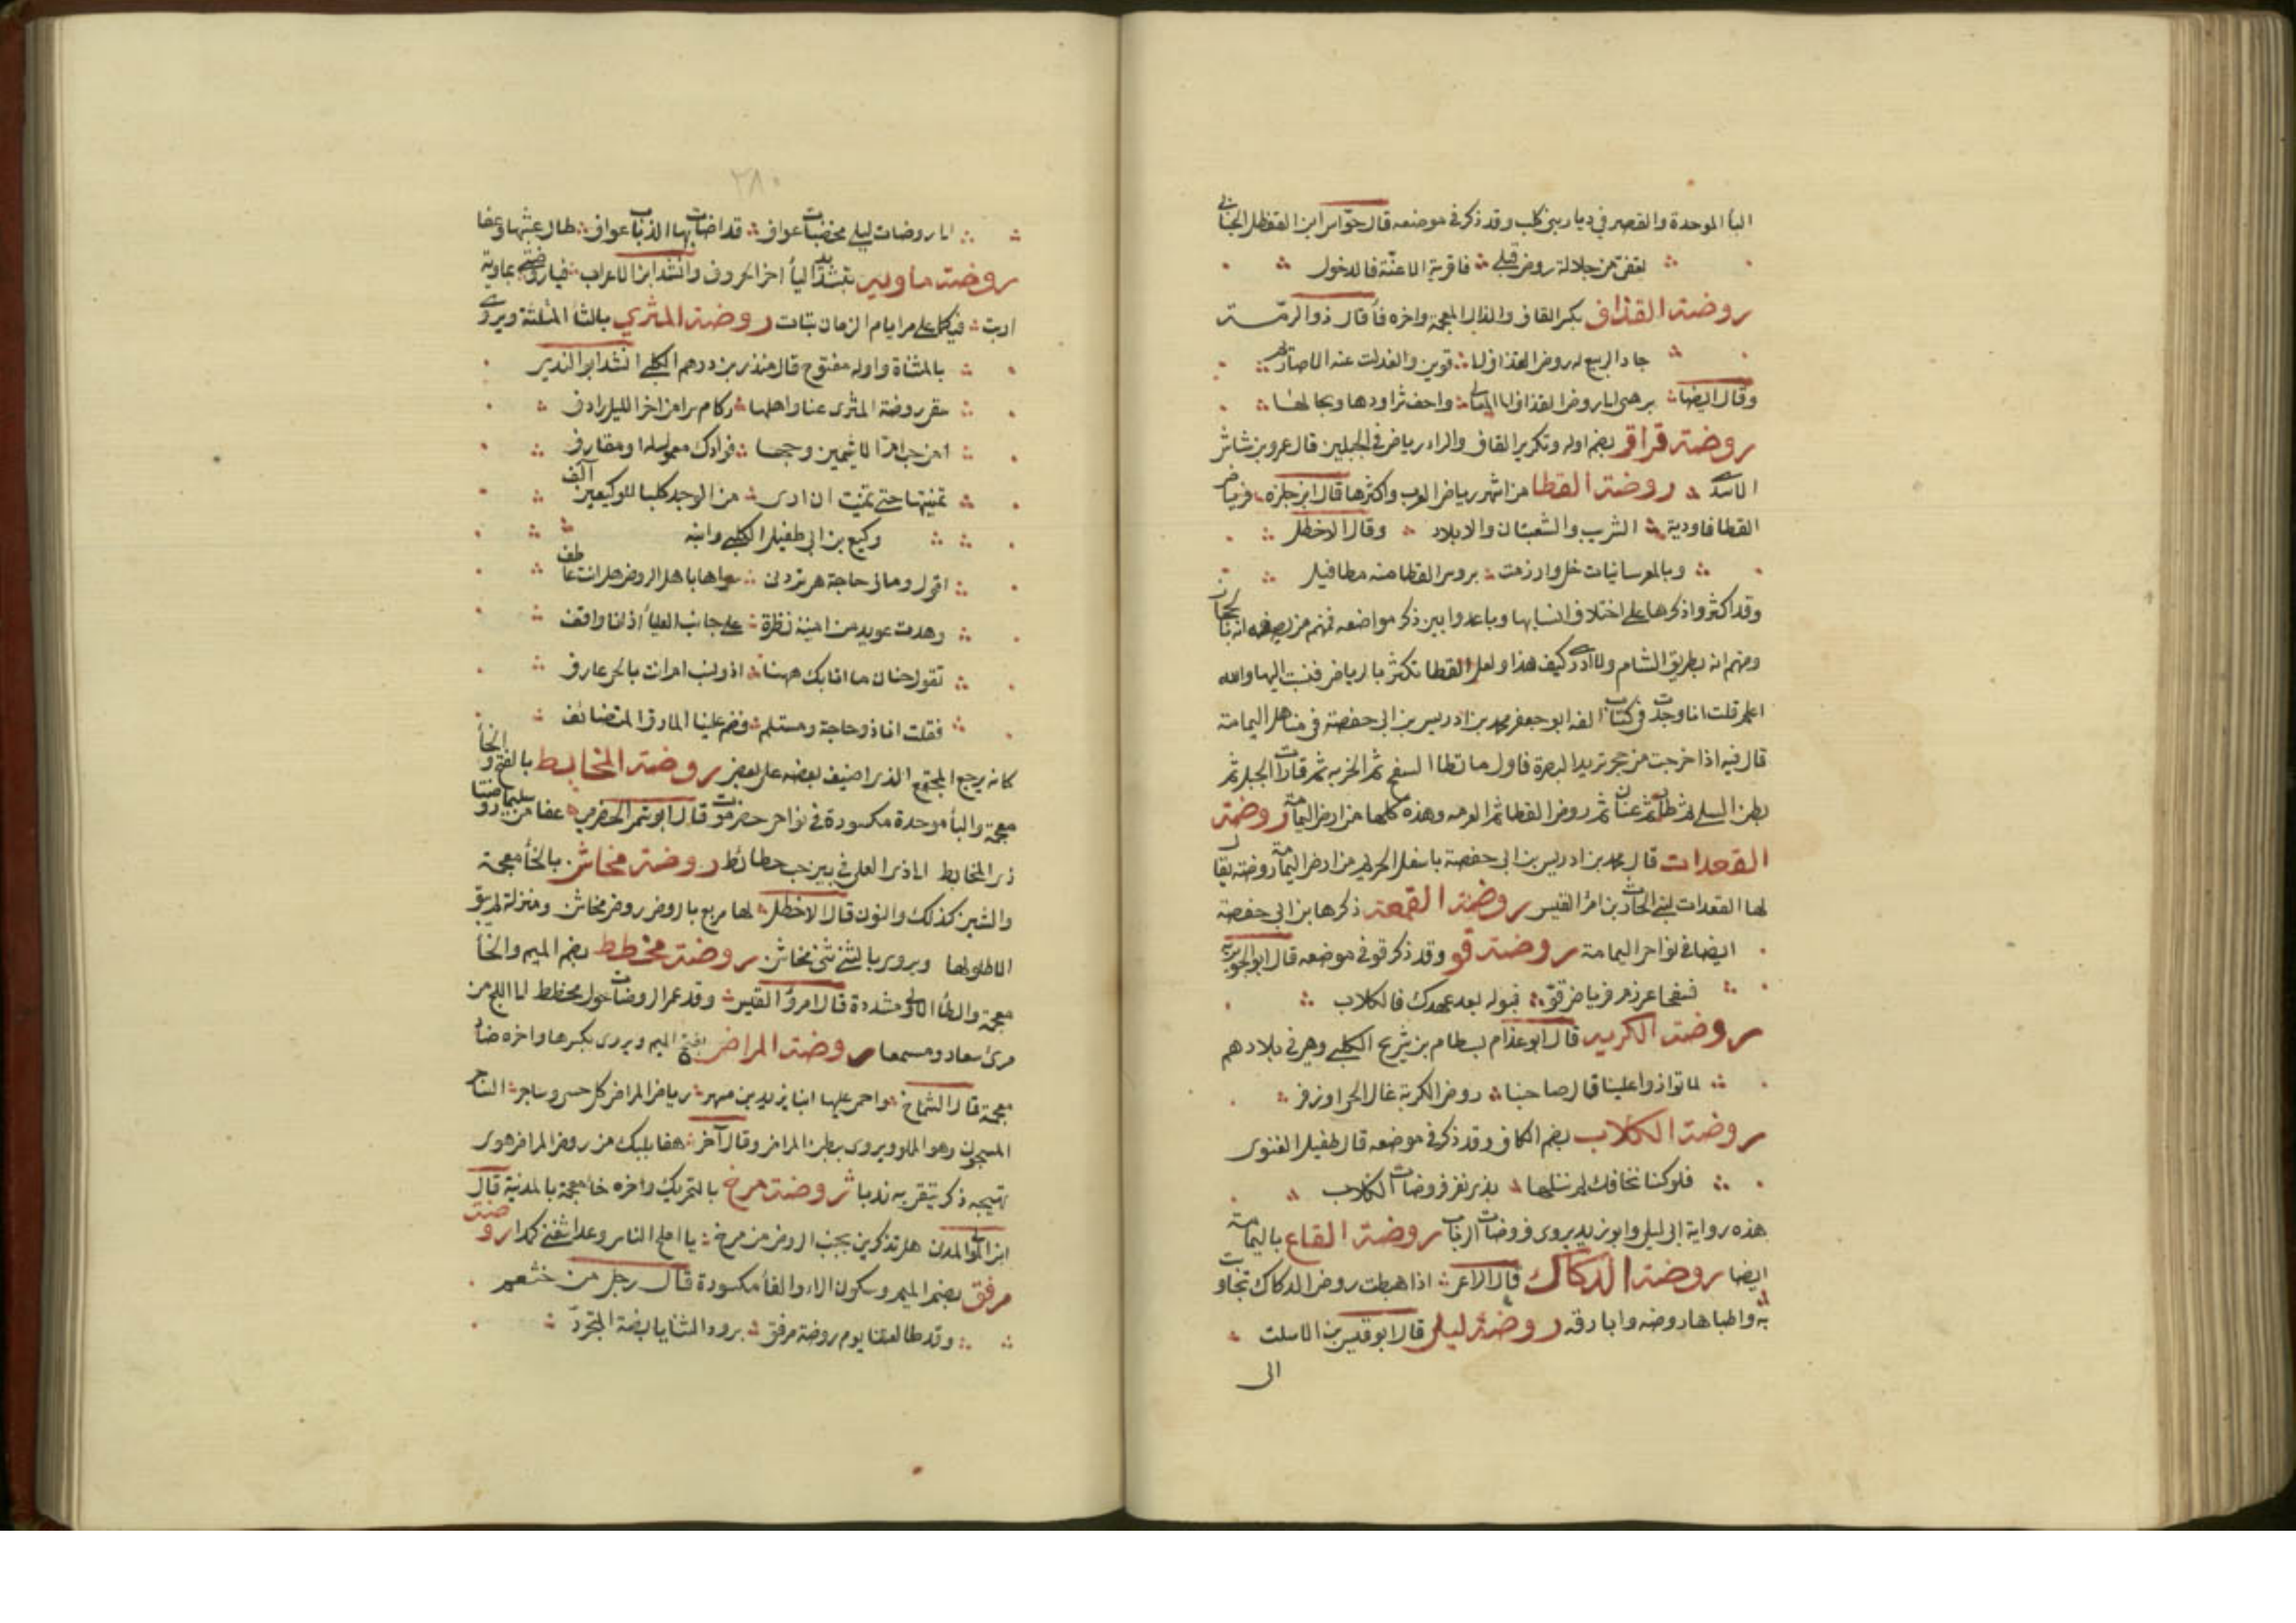 البأ الموحدة والقصر في ديار بني كلب وقد ذكر في موضعه قال جوّاس ابن القعطل الحنا في
تعفى من جلالة روض قبلى فاقرية الاعنّة فالدخول
روضة القذاف بكسر القاف والذال المعجمة واخره فأ قال ذو الرمّة
جاد الربيع له روض القذاف الى قوين والعدلت عنه الاصاريم
وقال ايضا برهبى الى روض القذاف الى المعا الى واحف تراودها ومجالها
روضة قراقر بضم اوله وتكرير القاف والراء رياض في الجبلين قال عمرو بن شاش
الاسدي روضة القطا من اشهر رياض العرب واكثرها قال ابن حلزه فرياض
القطا فاودية الشرب والشعبتان والابلاد وقال الاخطل
وبالمعرسانيات حل وارزمت بروض القطا منه مطافيل
وقد اكثروا ذكرها على اختلاف انسابها وباعدوا بين ذكر مواضعه فمنهم من يصفه انه بالحجاز
ومنهم انه بطريق الشام ولا ادري كيف هذا ولعل القطا تكثر بالرياض فنسبت اليها والله
اعلم قلت انا وجدت في كتاب الفه ابو جعفر محمد بن ادريس بن ابي حفصة في مناهل اليمامة
قال فيه اذا خرجت من حجر تريد البصرة فاول ما تطا السفح ثم الخربه ثم قارات الحبل ثم
بطن السلي ثم طار ثم عنان ثم روض القطا ثم العرمه وهذه كلها من ارض اليمامة روضة
القعدات قال محمد بن ادريس بن ابي حفصة باسفل الحريم من ارض اليمامة روضة يقال
لها القعدات لبني الحارث بن امرا القيس روضة القمعة ذكرها بن ابي حفصة
ايضا في نواحي اليمامة روضة قو وقد ذكر قو في موضعه قال ابو الجويريه
فسفحا عرزم فرياض قوّ فبوله بعد عهدك فالكلاب
روضة الكرية قال ابو عذام بسطام بن شريح الكلبي وهي في بلادهم
لما توازوا علينا قال صاحبنا روض الكرية غال الحي او زفر
روضة الكلاب بضم الكاف وقد ذكر في موضعه قال طفيل الغنوي
فلو كنا نخافك لم ننلها بذي نفر فروضات الكلاب
هذه رواية ابي ليلى وابو زيد يروي فروضات الرباب روضة القاع باليمامة
ايضا روضة الدكاك قال الاعر اذا هبطت روض الدكاك تجاوبت
به واطباها روضه وابارقه روضة ليلى قال ابو قيس بن الاسلت
الى
٢٨٠
الى روضات ليلى مخصبات عواف قد اضات بها الذباب عواف طال عشبها وعفا
روضة ماوية بتشديد اليأ اخر الحروف وانشد ابن الاعرابي فيا روضتي ماوية
اربت فيكما على مر ايام الزمان نبات روضة المثري بالثأ المثلثة ويروى
بالمثناة واوله مفتوح قال منذر بن درهم الكلبي انشد ابو الندى
سقى روضة المثرى عنا واهلها ركام سرى من اخر الليل رادف
امن حب ام الاشيمين وحبها فؤادك معمول له او مقارف
تمنيتها حتى تمنيت ان ارى من الوجد كلبا للوكيعين آلف
وكيع بن ابي طفيل الكلبي وابنه
اقول ومالي حاجة هي تردني سواها باهل الروض هل انت عاطف
وحدت عويد من امينه نظرة على جانب العليأ اذ انا واقف
تقول حنان ما اتا بك ههنا اذو نسب ام انت بالحي عارف
فقلت انا ذو حاجة ومسلم فضم علينا المازق المتضائف
كانه يرجع المجتمع الذي اضيف بعضه على بعض روضة المخابط بالفتح والخأ
معجمة والبأ موحدة مكسورة في نواحي حضرموت قال ابو شمر الحضرمي عفا من سليمى روضتا
ذي المخابط الى ذي العلى في بين خب حطائط روضة مخاشن بالخأ معجمة
والشين كذلك والنون قال الاخطل لها مربع بالروض روض مخاشن ومنزلة لم يبق
الا طلولها ويروى بالثني ثني مخاشن روضة مخطط بضم الميم والخأ
معجمة والطأ الاولى مشددة قال امرؤ القيس وقد عمر الروضات حول مخطط الى اللج من
مرئ سعاد ومسمعا روضة المراض بفتح الميم ويروى بكسرها واخره ضاد
معجمة قال الشماخ واحمى عليها ابنا يزيد بن مسهر رياض المراض كل حسي وساجر الساجر
المسجون وهو الملو ويروى ببطن المراض وقال آخر هفا بلبك من روض المراض هوى
يهيجه ذكر تبقى به ندبا روضة مرخ بالتحريك واخره خأ معجمة بالمدينة قال
ابن المولى المدنى هل تذكرين بجنب الروض من مرخ يا املح الناس وعدا شفني كمدا روضة
مرفق بضم الميم وسكون الراء والفأ مكسورة قال رجل من خثعم
وقد طالعتنا يوم روضة مرفق برود الثنايا بضة المتجرّد